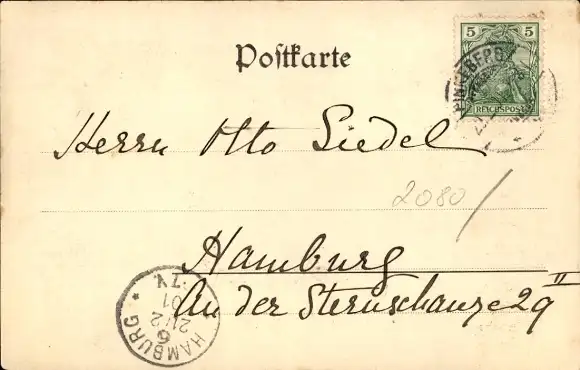 Postkarte
5 5
REICHSPOST
Herrn Otto Siedel
2080
Hamburg
An der Sternschanze 29 II
HAMBURG
* 6 *
21/2
01
7V.